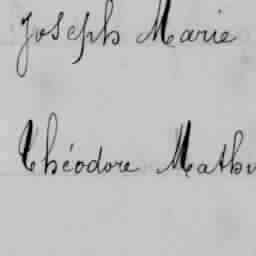 Joseph Marie
Théodore Mathu